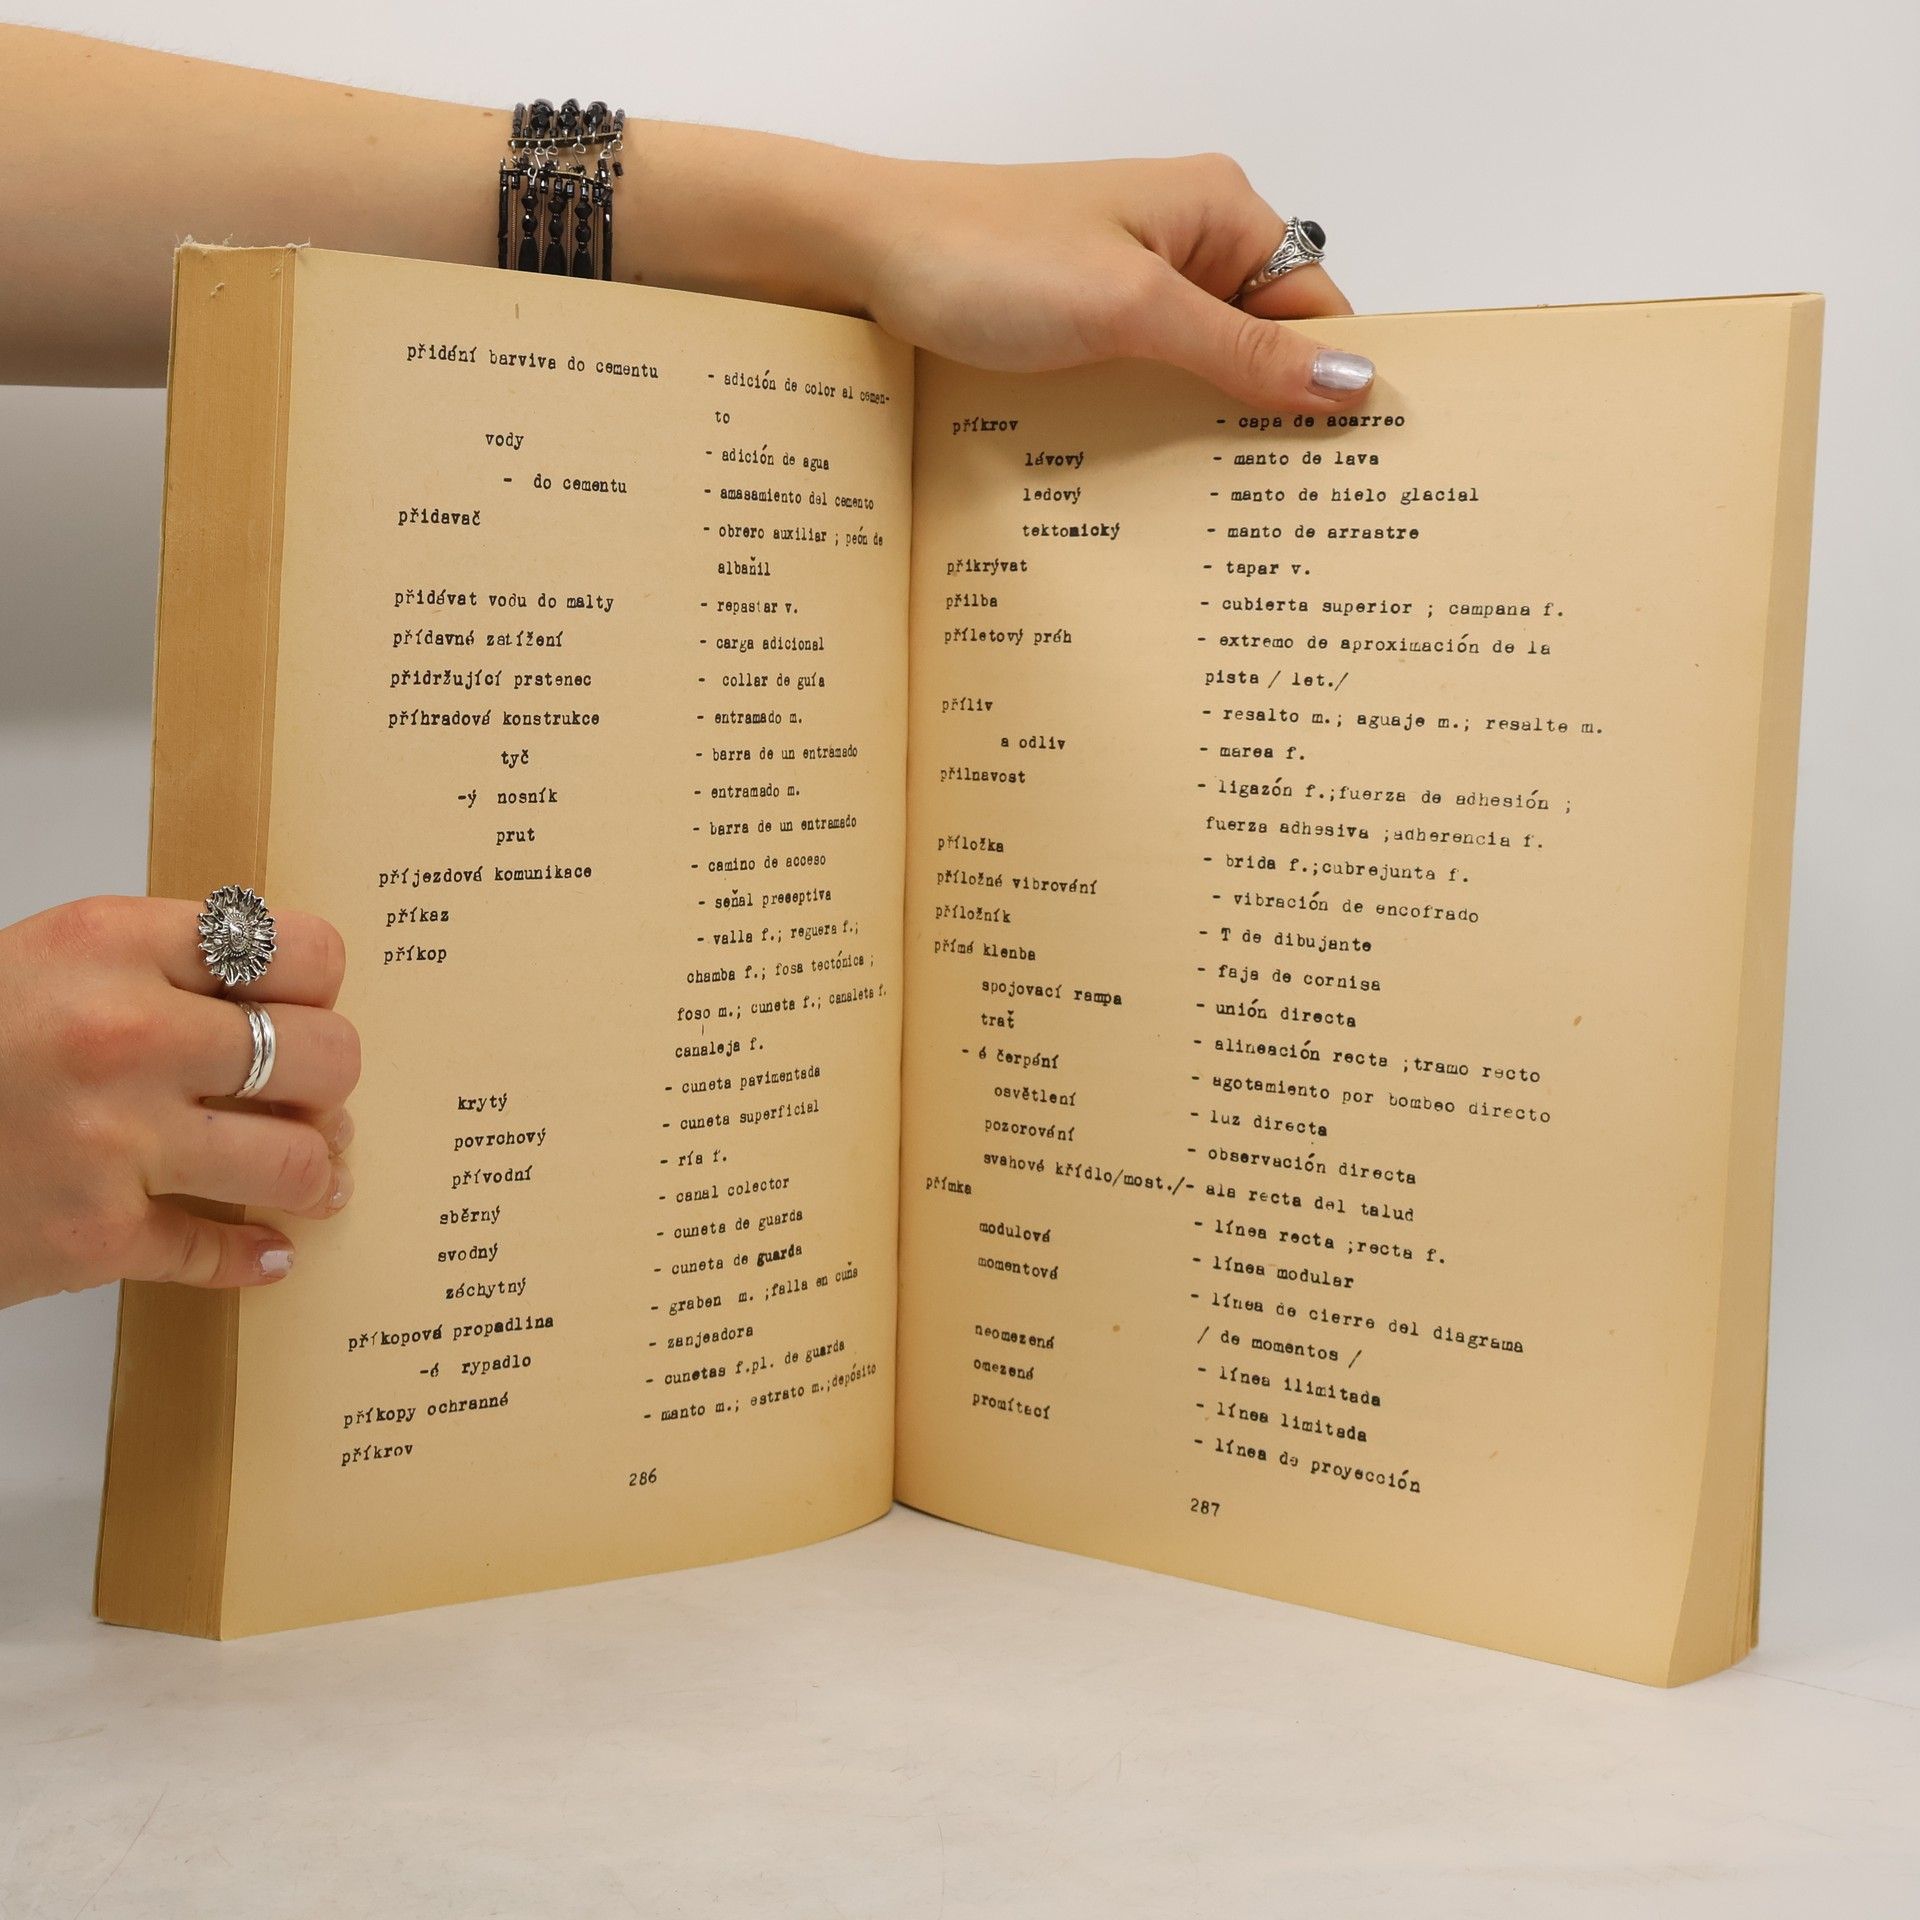 přidání barviva do cementu - adición de color al cemen-
to
vody - adición de agua
- do cementu - amasamiento del cemento
přidavač - obrero auxiliar ; peón de
albañil
přidávat vodu do malty - repastar v.
přídavné zatížení - carga adicional
přidržující prstenec - collar de guía
příhradová konstrukce - entramado m.
tyč - barra de un entramado
-ý nosník - entramado m.
prut - barra de un entramado
příjezdová komunikace - camino de acceso
příkaz - señal preceptiva
příkop - valla f.; reguera f.;
chamba f.; fosa tectónica ;
foso m.; cuneta f.; canaleta f.
canaleja f.
krytý - cuneta pavimentada
povrchový - cuneta superficial
přívodní - ría f.
sběrný - canal colector
svodný - cuneta de guarda
záchytný - cuneta de guarda
příkopová propadlina - graben m. ;falla en cuña
-é rypadlo - zanjeadora
příkopy ochranné - cunetas f.pl. de guarda
příkrov - manto m.; estrato m.;depósito
286
příkrov - capa de acarreo
lávový - manto de lava
ledový - manto de hielo glacial
tektonický - manto de arrastre
přikrývat - tapar v.
přilba - cubierta superior ; campana f.
příletový práh - extremo de aproximación de la
pista / let./
příliv - resalto m.; aguaje m.; resalte m.
a odliv - marea f.
přilnavost - ligazón f.;fuerza de adhesión ;
fuerza adhesiva ;adherencia f.
příložka - brida f.;cubrejunta f.
příložné vibrování - vibración de encofrado
příložník - T de dibujante
přímá klenba - faja de cornisa
spojovací rampa - unión directa
trať - alineación recta ;tramo recto
- é čerpání - agotamiento por bombeo directo
osvětlení - luz directa
pozorování - observación directa
svahové křídlo/most./- ala recta del talud
přímka - línea recta ;recta f.
modulová - línea modular
momentová - línea de cierre del diagrama
/ de momentos /
neomezená - línea ilimitada
omezená - línea limitada
promítací - línea de proyección
287